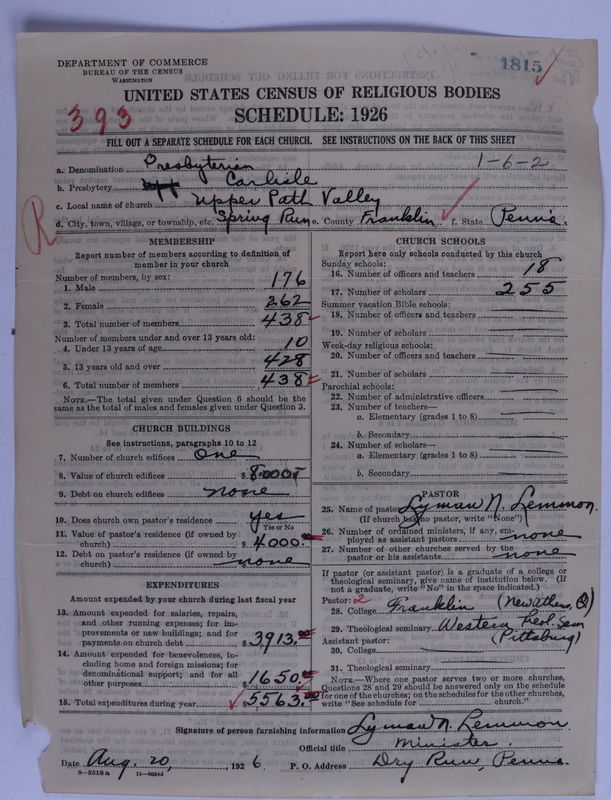 DEPARTMENT OF COMMERCE
BUREAU OF THE CENSUS
WASHINGTON
1815
UNITED STATES CENSUS OF RELIGIOUS BODIES
SCHEDULE: 1926
393
FILL OUT A SEPARATE SCHEDULE FOR EACH CHURCH. SEE INSTRUCTIONS ON THE BACK OF THIS SHEET
1-6-2
a. Denomination Presbyterian
b. Presbytery Carlisle
c. Local name of church Upper Path Valley
d. City, town, village, or township, etc. Spring Run e. County Franklin f. State Penn'a.
R
MEMBERSHIP
Report number of members according to definition of
member in your church
Number of members, by sex:
1. Male 176
2. Female 262
3. Total number of members 438
Number of members under and over 13 years old:
4. Under 13 years of age 10
5. 13 years old and over 428
6. Total number of members 438
NOTE.—The total given under Question 6 should be
the same as the total of males and females given under Question 3.
CHURCH BUILDINGS
See instructions, paragraphs 10 to 12
7. Number of church edifices one
8. Value of church edifices $ 8000
9. Debt on church edifices none
10. Does church own pastor's residence yes
Yes or No
11. Value of pastor's residence (if owned by
church) $ 4000.
12. Debt on pastor's residence (if owned by
church) none
EXPENDITURES
Amount expended by your church during last fiscal year
13. Amount expended for salaries, repairs,
and other running expenses; for im-
provements or new buildings; and for
payments on church debt $ 3913.00
14. Amount expended for benevolences, in-
cluding home and foreign missions; for
denominational support; and for all
other purposes $ 1650.00
15. Total expenditures during year $ 5563.00
CHURCH SCHOOLS
Report here only schools conducted by this church
Sunday schools:
16. Number of officers and teachers 18
17. Number of scholars 255
Summer vacation Bible schools:
18. Number of officers and teachers
19. Number of scholars
Week-day religious schools:
20. Number of officers and teachers
21. Number of scholars
Parochial schools:
22. Number of administrative officers
23. Number of teachers—
a. Elementary (grades 1 to 8)
b. Secondary
24. Number of scholars—
a. Elementary (grades 1 to 8)
b. Secondary
PASTOR
25. Name of pastor Lyman N. Lemmon.
(If church has no pastor, write "None")
26. Number of ordained ministers, if any, em-
ployed as assistant pastors none
27. Number of other churches served by the
pastor or his assistants none
If pastor (or assistant pastor) is a graduate of a college or
theological seminary, give name of institution below. (If
not a graduate, write "No" in the space indicated.)
Pastor: 2
28. College Franklin (New Athens, O)
29. Theological seminary Western Theol. Sem
Assistant pastor: (Pittsburg)
30. College
31. Theological seminary
NOTE.—Where one pastor serves two or more churches,
Questions 28 and 29 should be answered only on the schedule
for one of the churches; on the schedules for the other churches,
write "See schedule for church."
Signature of person furnishing information Lyman N. Lemmon
Official title Minister
Date Aug. 20, 1926. P. O. Address Dry Run, Penna.